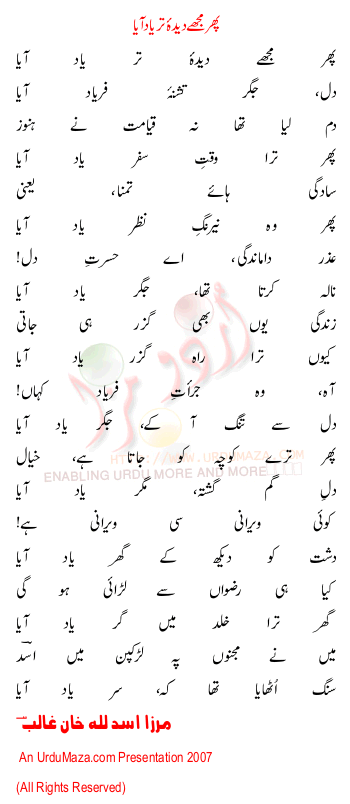 پھر مجھے دیدۂ تر یاد آیا
پھر مجھے دیدۂ تر یاد آیا
دل، جگر تشنۂ فریاد آیا
دم لیا تھا نہ قیامت نے ہنوز
پھر ترا وقتِ سفر یاد آیا
سادگی ہائے تمنا، یعنی
پھر وہ نیرنگِ نظر یاد آیا
عذر داماندگی، اے حسرتِ دل!
نالہ کرتا تھا، جگر یاد آیا
زندگی یوں بھی گزر ہی جاتی
کیوں ترا راہ گزر یاد آیا
آہ، وہ جرأتِ فریاد کہاں!
دل سے تنگ آ کے، جگر یاد آیا
HTTP://WWW.URDUMAZA.COM
پھر ترے کوچہ کو جاتا ہے، خیال
ENABLING URDU MORE AND MORE
دلِ گم گشتہ، مگر یاد آیا
کوئی ویرانی سی ویرانی ہے!
دشت کو دیکھ کے گھر یاد آیا
کیا ہی رضواں سے لڑائی ہو گی
گھر ترا خلد میں گر یاد آیا
میں نے مجنوں پہ لڑکپن میں اسدؔ
سنگ اُٹھایا تھا کہ، سر یاد آیا
مرزا اسد للہ خان غالب
An UrduMaza.com Presentation 2007
(All Rights Reserved)